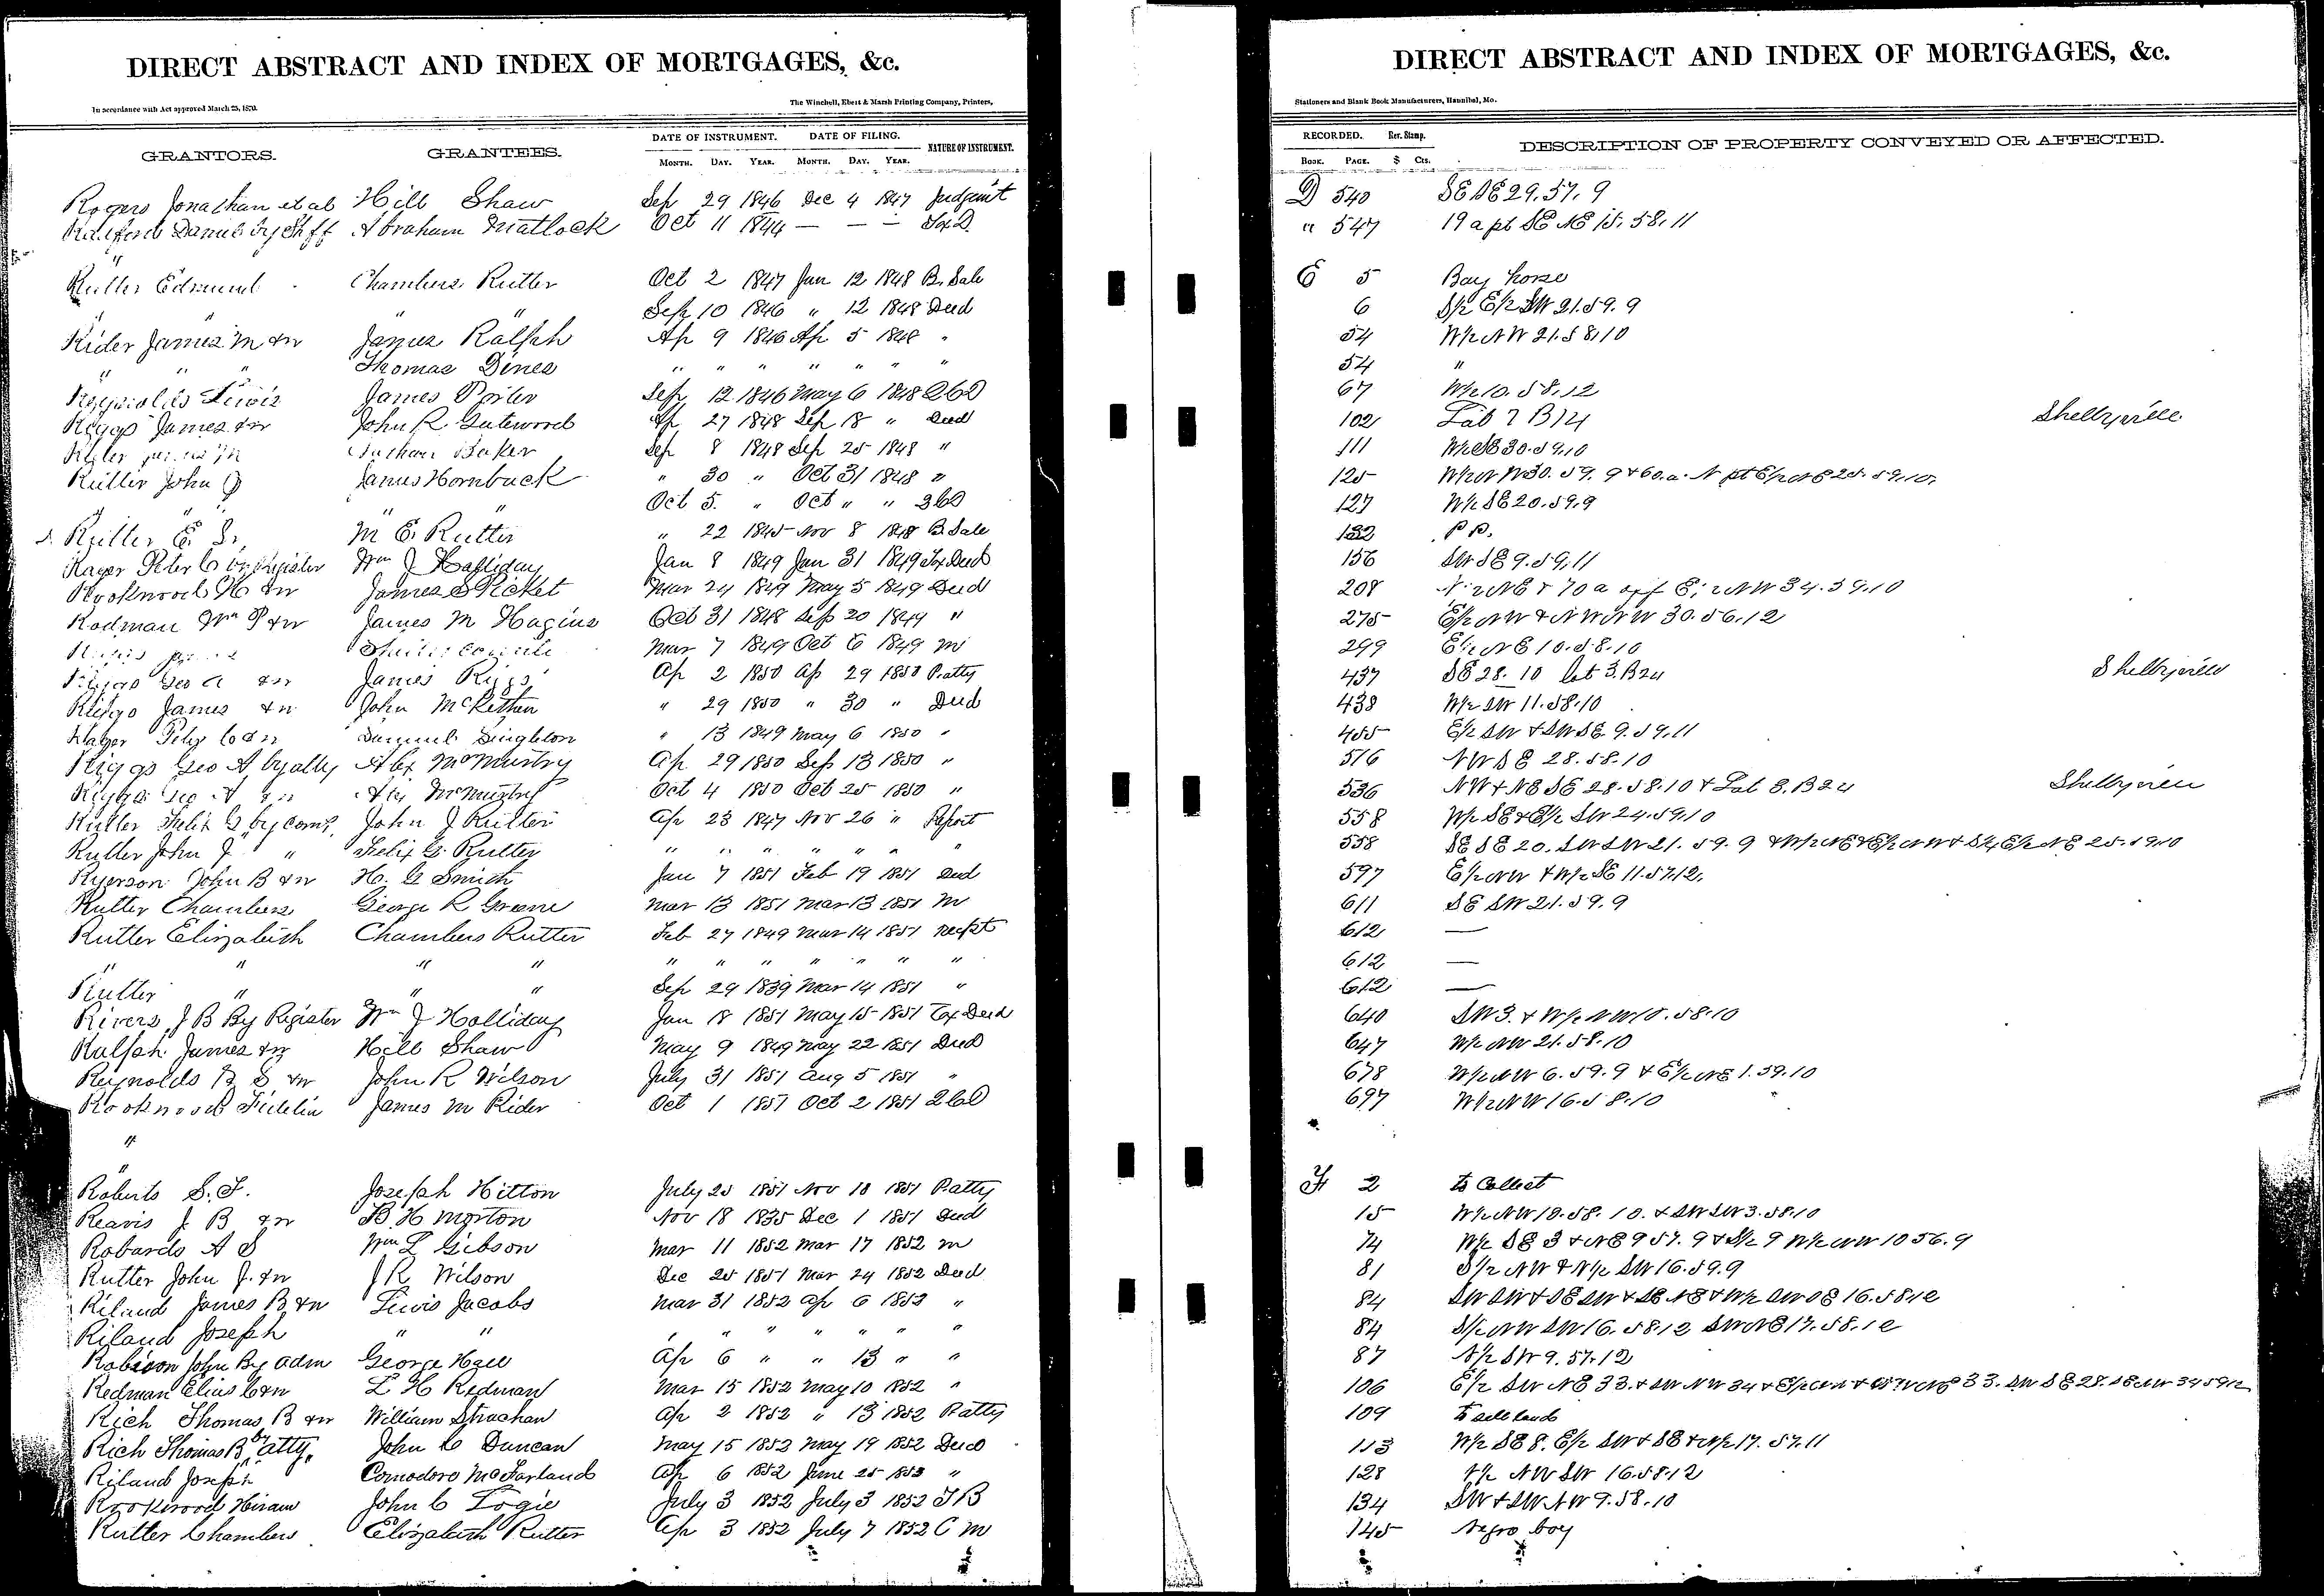 DIRECT ABSTRACT AND INDEX OF MORTGAGES, &c.
In accordance with Act approved March 25, 1870.
The Winchell, Ebert & Marsh Printing Company, Printers,
GRANTORS. GRANTEES. DATE OF INSTRUMENT. DATE OF FILING. NATURE OF INSTRUMENT.
MONTH. DAY. YEAR. MONTH. DAY. YEAR.
Rogers Jonathan et al Hill Shaw Sep 29 1846 Dec 4 1847 Judgmt
Abraham Matlock Oct 11 1844 — — —
Rutter Edmund Chambers Rutter Oct 2 1847 Jan 12 1848 B. Sale
" " " " Sep 10 1846 " 12 1848 Deed
Rider James M &w James Ralph Ap 9 1846 Ap 5 1848 "
" " " Thomas Dines " " " " " " "
Reynolds Lewis James Porter Sep 12 1846 May 6 1848 QCD
Riggs James &w John R Gatewood Ap 27 1848 Sep 18 " Deed
Baker Sep 8 1848 Sep 25 1848 "
Rutter John J James Hornback " 30 " Oct 31 1848 "
" " " " Oct 5 " Oct " " QCD
Rutter E. Sr. M E. Rutter " 22 1845 Nov 8 1848 B. Sale
Rager Peter C by Register Wm J Halliday Jan 8 1849 Jan 31 1849 Tax Deed
Rookwood H &w James S Picket Mar 24 1849 May 5 1849 Deed
Rodman Wm P &w James M Hagins Oct 31 1848 Sep 20 1849 "
Mar 7 1849 Oct 6 1849 M
Riggs Geo A &w James Riggs Ap 2 1850 Ap 29 1850 P. atty
Riggs James &w John McKethen " 29 1850 " 30 " Deed
Rager Peter C &w Samuel Singleton " 13 1849 May 6 1850 "
Riggs Geo A by atty Alex McMurtry Ap 29 1850 Sep 13 1850 "
Riggs Geo A &w Alex McMurtry Oct 4 1850 Oct 25 1850 "
Rutter Felix G by Comr John J Rutter Ap 23 1847 Nov 26 " Report
Rutter John J " Felix G. Rutter " " " " " " "
Ryerson John B &w H. G Smith Jan 7 1851 Feb 19 1851 Deed
Rutter Chambers George R Greene Mar 13 1851 Mar 13 1851 M
Rutter Elizabeth Chambers Rutter Feb 27 1849 Mar 14 1851 Recpt
" " " " " " " " " " "
Rutter " " " Sep 29 1839 Mar 14 1851 "
Rivers J B By Register Wm J Holliday Jan 18 1851 May 15 1851 Tax Deed
Ralph James &w Hill Shaw May 9 1849 May 22 1851 Deed
Reynolds B S &w John R Wilson July 31 1851 Aug 5 1851 "
Rookwood Fidelia James M Rider Oct 1 1851 Oct 2 1851 QCD
"
"
Roberts S. F. Joseph Hitton July 25 1851 Nov 10 1851 P. atty
Reavis J B &w B H Morton Nov 18 1835 Dec 1 1851 Deed
Robards A S Wm L Gibson Mar 11 1852 Mar 17 1852 M
Rutter John J. &w J R Wilson Dec 25 1851 Mar 24 1852 Deed
Riland James B &w Lewis Jacobs Mar 31 1852 Ap 6 1852 "
Riland Joseph " " " " " " " " "
Robison John By adm George Hall Ap 6 " " 13 " "
Redman Elias C &w L H Redman Mar 15 1852 May 10 1852 "
Rich Thomas B &w William Strachan Ap 2 1852 " 13 1852 P. atty
Rich Thomas B by atty. John C Duncan May 15 1852 May 19 1852 Deed
Riland Joseph Comodore McFarland Ap 6 1852 June 25 1852 "
Rookwood Hiram John C Logie July 3 1852 July 3 1852 T B
Rutter Chambers Elizabeth Rutter Ap 3 1852 July 7 1852 C M
DIRECT ABSTRACT AND INDEX OF MORTGAGES, &c.
Stationers and Blank Book Manufacturers, Hannibal, Mo.
RECORDED. Rev. Stamp. DESCRIPTION OF PROPERTY CONVEYED OR AFFECTED.
BOOK. PAGE. $ Cts.
D 540 SE SE 29. 57. 9
" 547 19 a pt SE NE 15. 58. 11
E 5 Bay horse
6 S/2 E/2 SW 21. 59. 9
54 W/2 NW 21. 58. 10
54 "
67 W/2 10. 58. 12
102 Lot 7 B 14 Shelbyville
111 W/2 SE 30. 59. 10
125 W/2 NW 30. 59. 9 & 60. a. N pt E/2 NE 25. 59. 10.
127 W/2 SE 20. 59. 9
132 P P.
156 SW SE 9. 59. 11
208 N/2 NE & 70 a off E/2 NW 34. 59. 10
275 E/2 NW & NW NW 30. 56. 12
299 E/2 NE 10. 58. 10
437 SE 28. 10 lot 3. B 24 Shelbyville
438 W/2 SW 11. 58. 10
455 E/2 SW & SW SE. 9. 59. 11
516 NW SE 28. 58. 10
536 NW & NE SE 28. 58. 10 & Lot 3. B 24 Shelbyville
558 W/2 SE & E/2 SW 24. 59. 10
558 SE SE 20. SW SW 21. 59. 9 & W/2 NE & E/2 NW & S/2 E/2 NE 25. 59. 10
597 E/2 NW & W/2 SE 11. 57. 12.
611 SE SW 21. 59. 9
612 —
612 —
612 —
640 SW 3. & W/2 NW 10. 58. 10
647 W/2 NW 21. 58. 10
678 W/2 NW 6. 59. 9 & E/2 NE 1. 59. 10
697 W/2 NW 16. 58. 10
F 2 to Collect
15 W/2 NW 10. 58. 10. & SW SW 3. 58. 10
74 W/2 SE 3 & NE 9 57. 9 & S/2 9 W/2 NW 10 56. 9
81 S/2 NW & N/2 SW 16. 59. 9
84 SW SW & SE SW & SE NE & W/2 SW SE 16. 58. 12
84 S/2 NW SW 16. 58. 12 SW NE 17. 58. 12
87 N/2 SW 9. 57. 12
106 E/2 SW NE 33. & SW NW 34 33. SW SE 28. SE NW 34 59 12
109 to sell lands
113 W/2 SE 8. E/2 SW & SE & N/2 17. 57. 11
128 NW SW 16. 58. 12
134 SW & SW NW 9. 58. 10
145 Negro boy